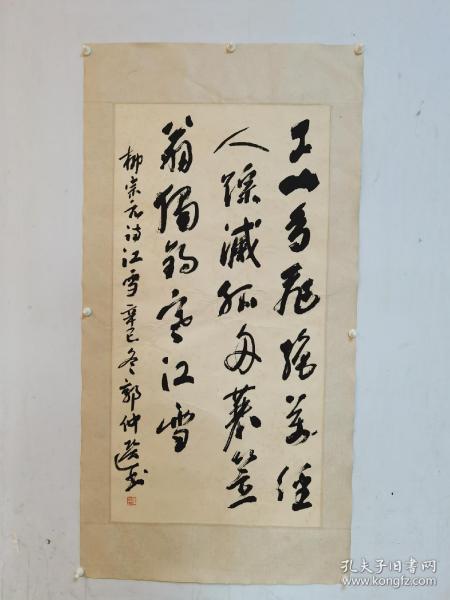 千山鸟飛绝萬径
人踪滅孤舟蓑笠
翁獨钓寒江雪
柳宗元诗江雪 辛巳冬 郭仲选书
孔夫子旧书网
www.kongfz.com